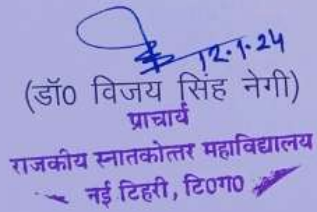 12.1.24
(डॉ0 विजय सिंह नेगी)
प्राचार्य
राजकीय स्नातकोत्तर महाविद्यालय
नई टिहरी, टि0ग0